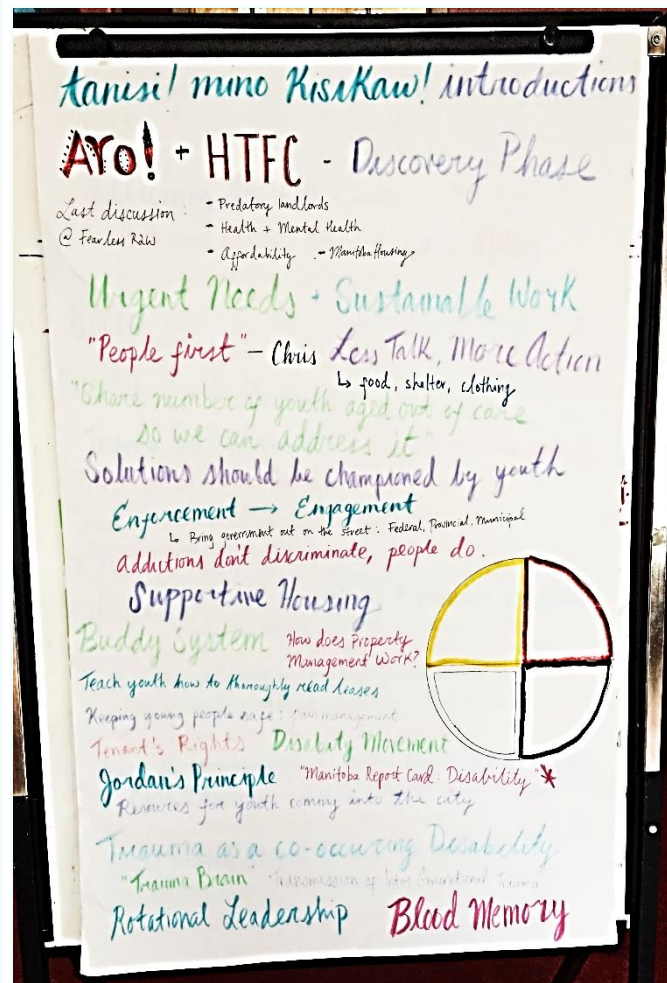 tanisi! mino Kisikaw! introductions
Aro! + HTFC - Discovery Phase
Last discussion :
@ Fearless R2W
- Predatory landlords
- Health + Mental Health
- Affordability - Manitoba Housing
Urgent Needs + Sustainable Work
"People first" - Chris Less Talk, More Action
↳ food, shelter, clothing
"Share number of youth aged out of care
so we can address it"
Solutions should be championed by youth
Enforcement → Engagement
↳ Bring government out on the street : Federal, Provincial, Municipal
Addictions don't discriminate, people do.
Supportive Housing
Buddy System
How does Property
Management Work?
Teach youth how to thoroughly read leases
Keeping young people safe : pain management
Tenant's Rights Disability Movement
Jordan's Principle "Manitoba Report Card : Disability" *
Resources for youth coming into the city
Trauma as a co-occuring Disability
"Trauma Brain" Transmission of Inter Generational Trauma
Rotational Leadership Blood Memory